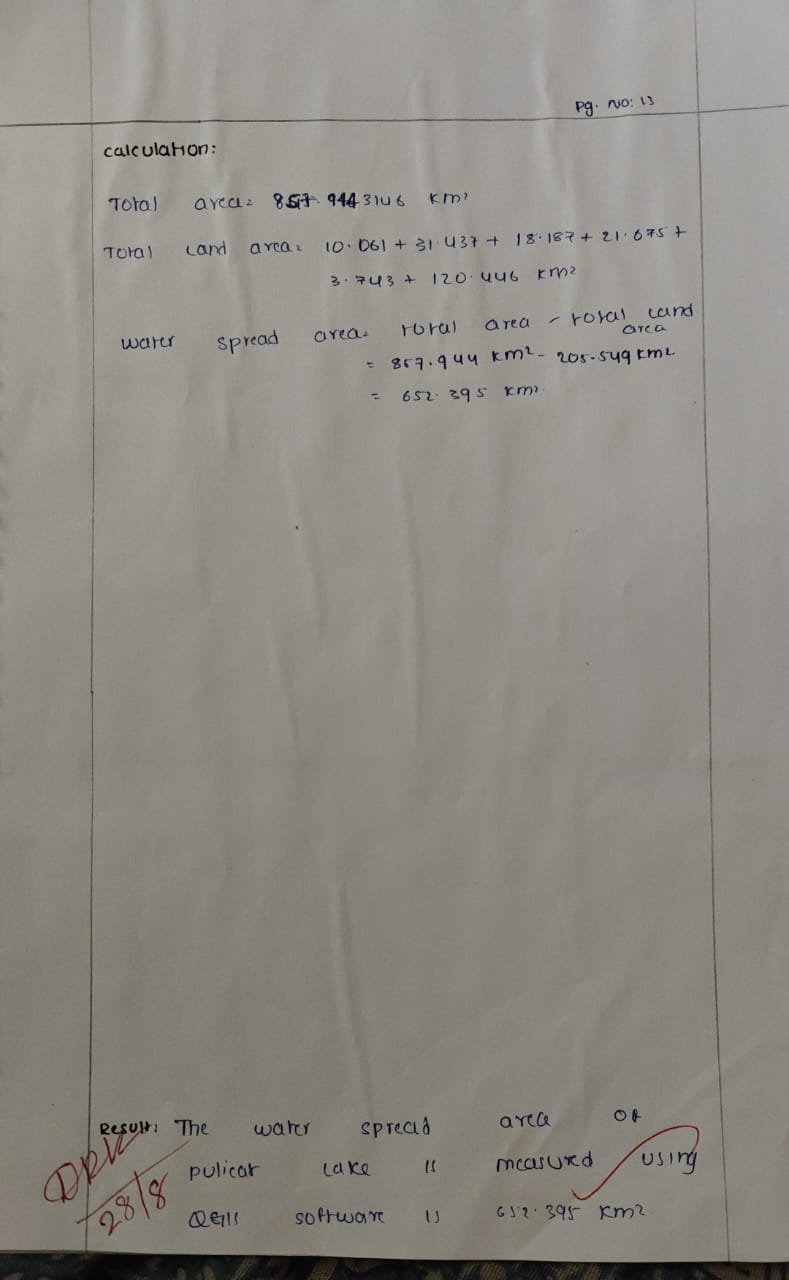 Pg. NO: 13
calculation:
Total area= 857.9443146 km²
Total Land area= 10.061 + 31.437 + 18.187 + 21.675 +
3.743 + 120.446 km²
water spread area= total area - total Land
area
= 857.944 km² - 205.549 km²
= 652.395 km²
Result: The water spread area of
pulicat Lake is measured using
QGIS software is 652.395 km²
28/8